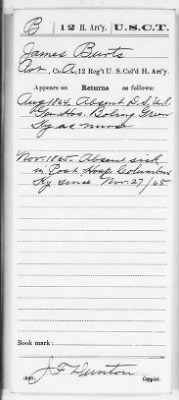 B 12 H. Art'y. U.S.C.T.
James Burts
Art., Co. A, 12 Reg't U. S. Col'd H. Art'y.
Appears on Returns as follows:
Aug 1864. Absent D.S. U.S.
Gen Hos. Boling Green
Ky as nurse
Nov. 1865. Absent sick
in Post Hosp. Columbus
Ky since Nov. 27/65
Book mark:
J F Dunton
Copyist.